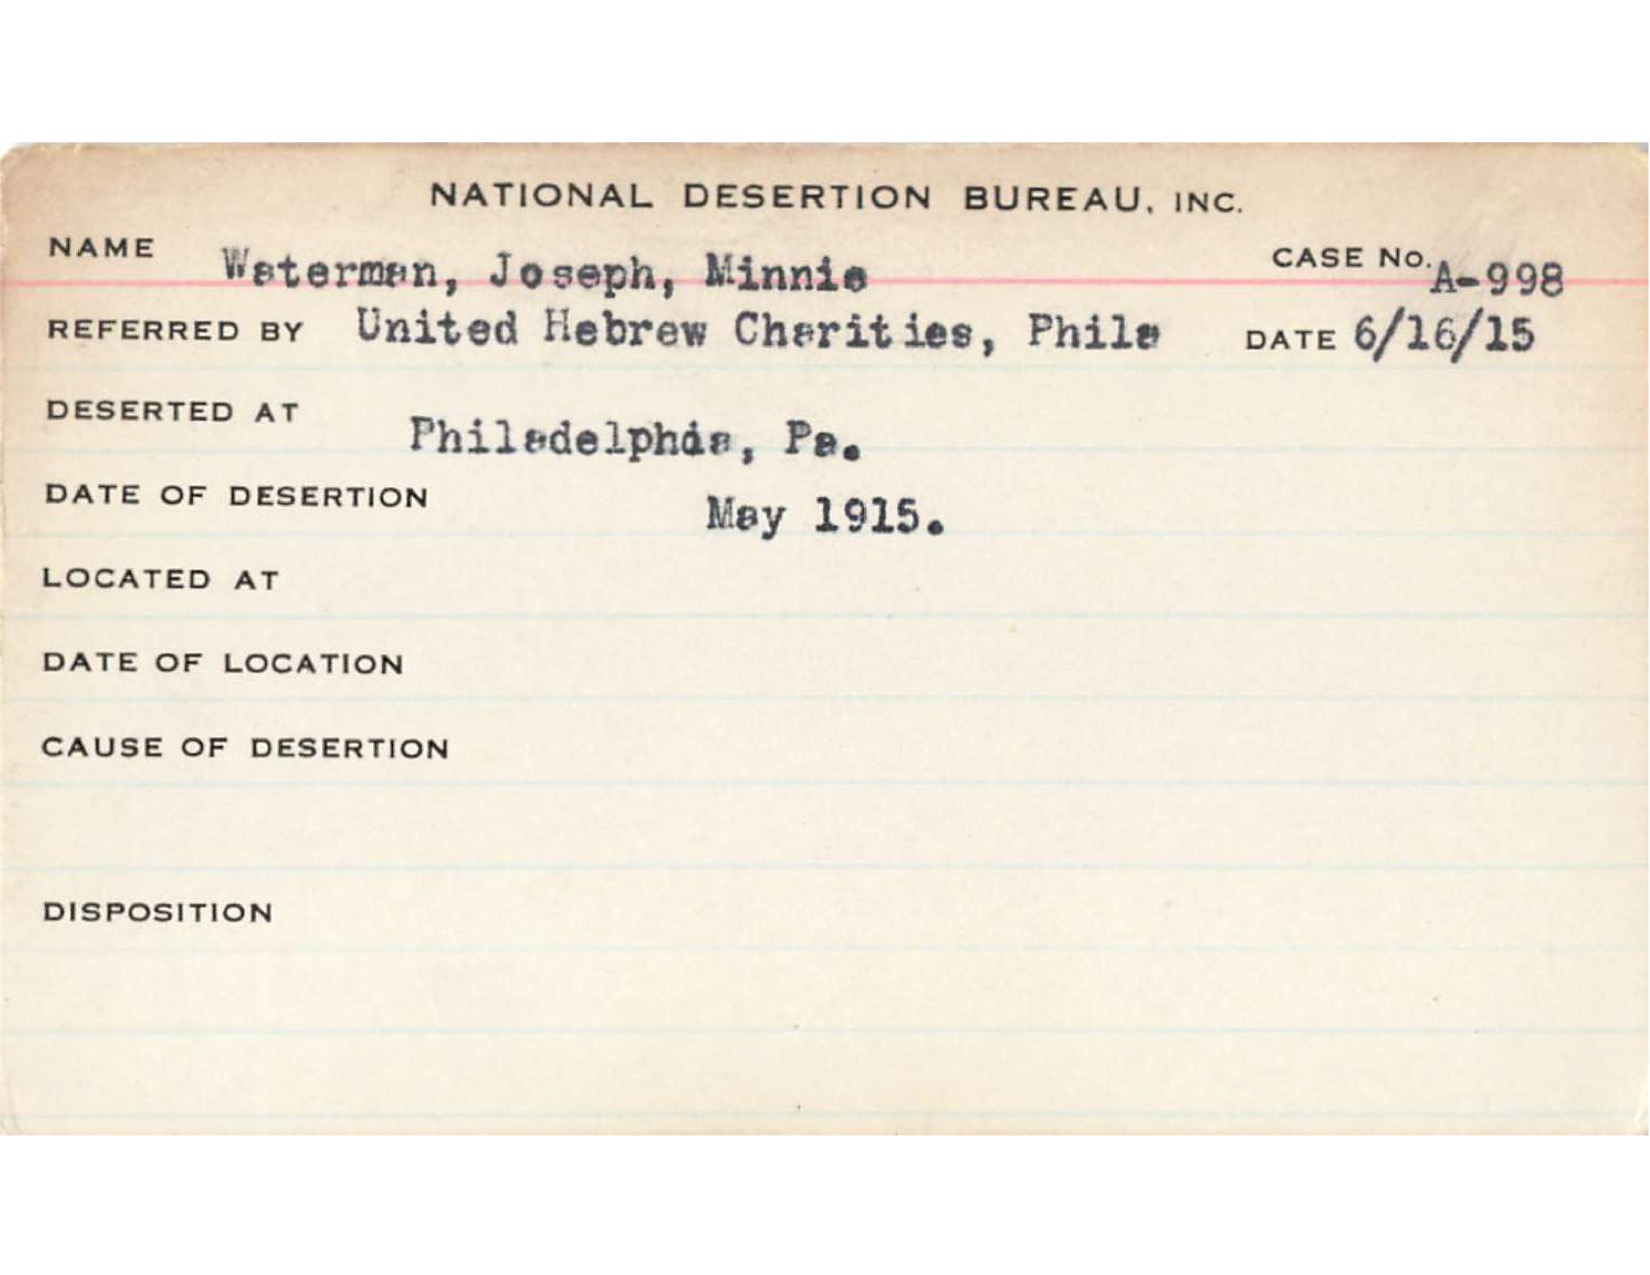 NATIONAL DESERTION BUREAU, INC.
NAME Waterman, Joseph, Minnie CASE No. A-998
REFERRED BY United Hebrew Charities, Phila DATE 6/16/15
DESERTED AT Philadelphia, Pa.
DATE OF DESERTION May 1915.
LOCATED AT
DATE OF LOCATION
CAUSE OF DESERTION
DISPOSITION